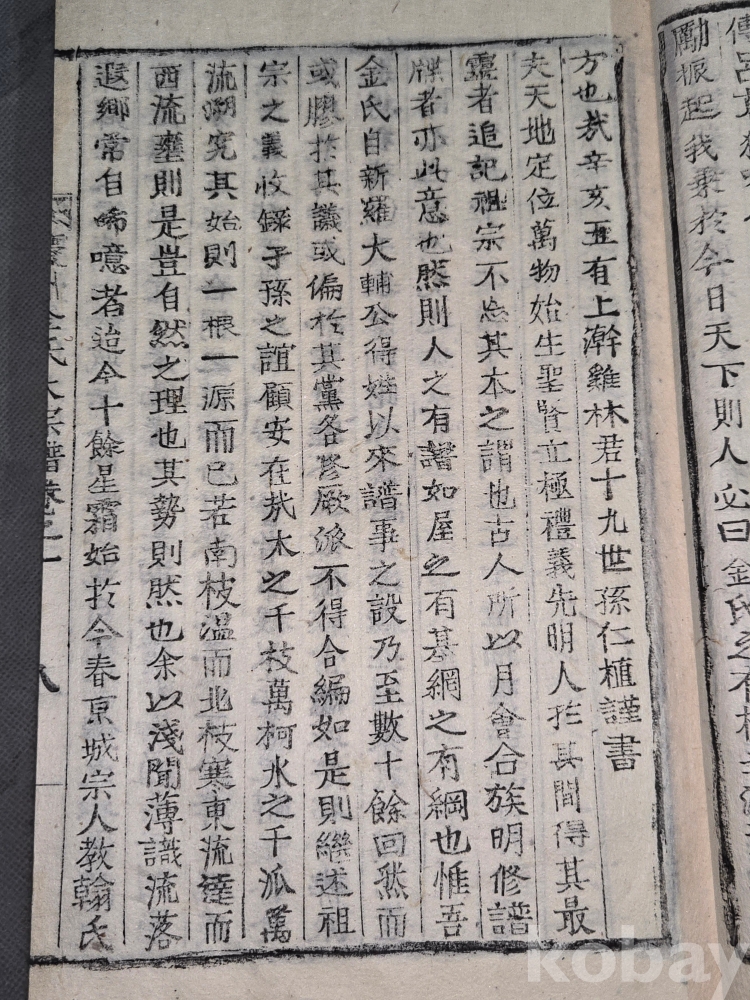 勵振起我秉於今日天下則人必曰金氏之有
方也哉辛亥五有上澣雞林君十九世孫仁植謹書
夫天地定位萬物始生聖賢立極禮義先明人於其間得其最
靈者追記祖宗不忘其本之謂也古人所以月會合族明修譜
牒者亦此意也然則人之有譜如屋之有基網之有綱也惟吾
金氏自新羅大輔公得姓以來譜事之設乃至數十餘回然而
或膠於其議或偏於其黨各修厥派不得合編如是則繼述祖
宗之義收錄子孫之誼顧安在哉木之千枝萬柯水之千派萬
流溯究其始則一根一源而已若南枝溫而北枝寒東流達而
西流壅則是豈自然之理也其勢則然也余以淺聞薄識流落
遐鄉常自唏噫者迨今十餘星霜始於今春京城宗人教翰氏
慶州金氏大宗譜卷之一 八
kobay